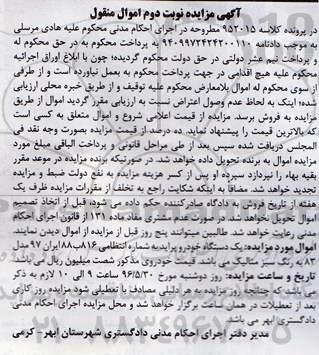 آگهی مزایده نوبت دوم اموال منقول
در پرونده کلاسه ۹۵۲۰۱۵ مطروحه در اجرای احکام مدنی محکوم علیه هادی مرسلی
به موجب دادنامه ۹۴۰۹۹۷۲۴۴۲۲۰۰۱۱۰ به پرداخت محکوم به در حق محکوم له
و پرداخت نیم عشر دولتی در حق دولت محکوم گردیده؛ چون با ابلاغ اوراق اجرائیه
محکوم علیه هیچ اقدامی در جهت پرداخت محکوم به بعمل نیاورده است و از طرفی
از سوی محکوم له اموال بلامعارض محکوم علیه توقیف و از طریق خبره محلی ارزیابی
شده؛ اینک به لحاظ عدم وصول اعتراض نسبت به ارزیابی مقرر گردید اموال از طریق
مزایده به فروش برسد. مزایده از قیمت اعلامی شروع و اموال متعلق به کسی است
که بالاترین قیمت را پیشنهاد نماید. ده درصد از قیمت مزایده بصورت وجه نقد فی
المجلس دریافت شده سپس بعد از طی مراحل قانونی و پرداخت الباقی مبلغ مورد
مزایده اموال به برنده تحویل داده خواهد شد. در صورتیکه برنده مزایده در موعد مقرر
بقیه بهاء را نپردازد سپرده او پس از کسر هزینه مزایده به نفع دولت ضبط و مزایده
تجدید خواهد شد. مضافاً به اینکه شکایت راجع به تخلف از مقررات مزایده ظرف یک
هفته از تاریخ فروش به دادگاه صادرکننده حکم داده می شود، قبل از اتخاذ تصمیم
اموال تحویل نخواهد شد. در صورت عدم مشتری مفاد ماده ۱۳۱ از قانون اجرای احکام
مدنی رعایت خواهد شد. طالبین میتوانند پنج روز قبل از مزایده از اموال دیدن نمایند.
اموال مورد مزایده: یک دستگاه خودرو پراید به شماره انتظامی ۸۱۶ب۸۸ ایران ۹۷ مدل
۸۳ به رنگ سبز متالیک می باشد. قیمت خودروی مذکور شصت میلیون ریال می باشد
تاریخ و ساعت مزایده: روز دوشنبه مورخ ۹۶/۵/۳۰ ساعت ۹ الی ۱۰ لازم به ذکر
می باشد که چنانچه روز مزایده به هر دلیلی مصادف با تعطیلی شود مزایده روز کاری
بعد از تعطیلات در همان ساعت برگزار خواهد شد و محل مزایده اجرای احکام مدنی
دادگستری ابهر می باشد.
مدیر دفتر اجرای احکام مدنی دادگستری شهرستان ابهر - کرمی